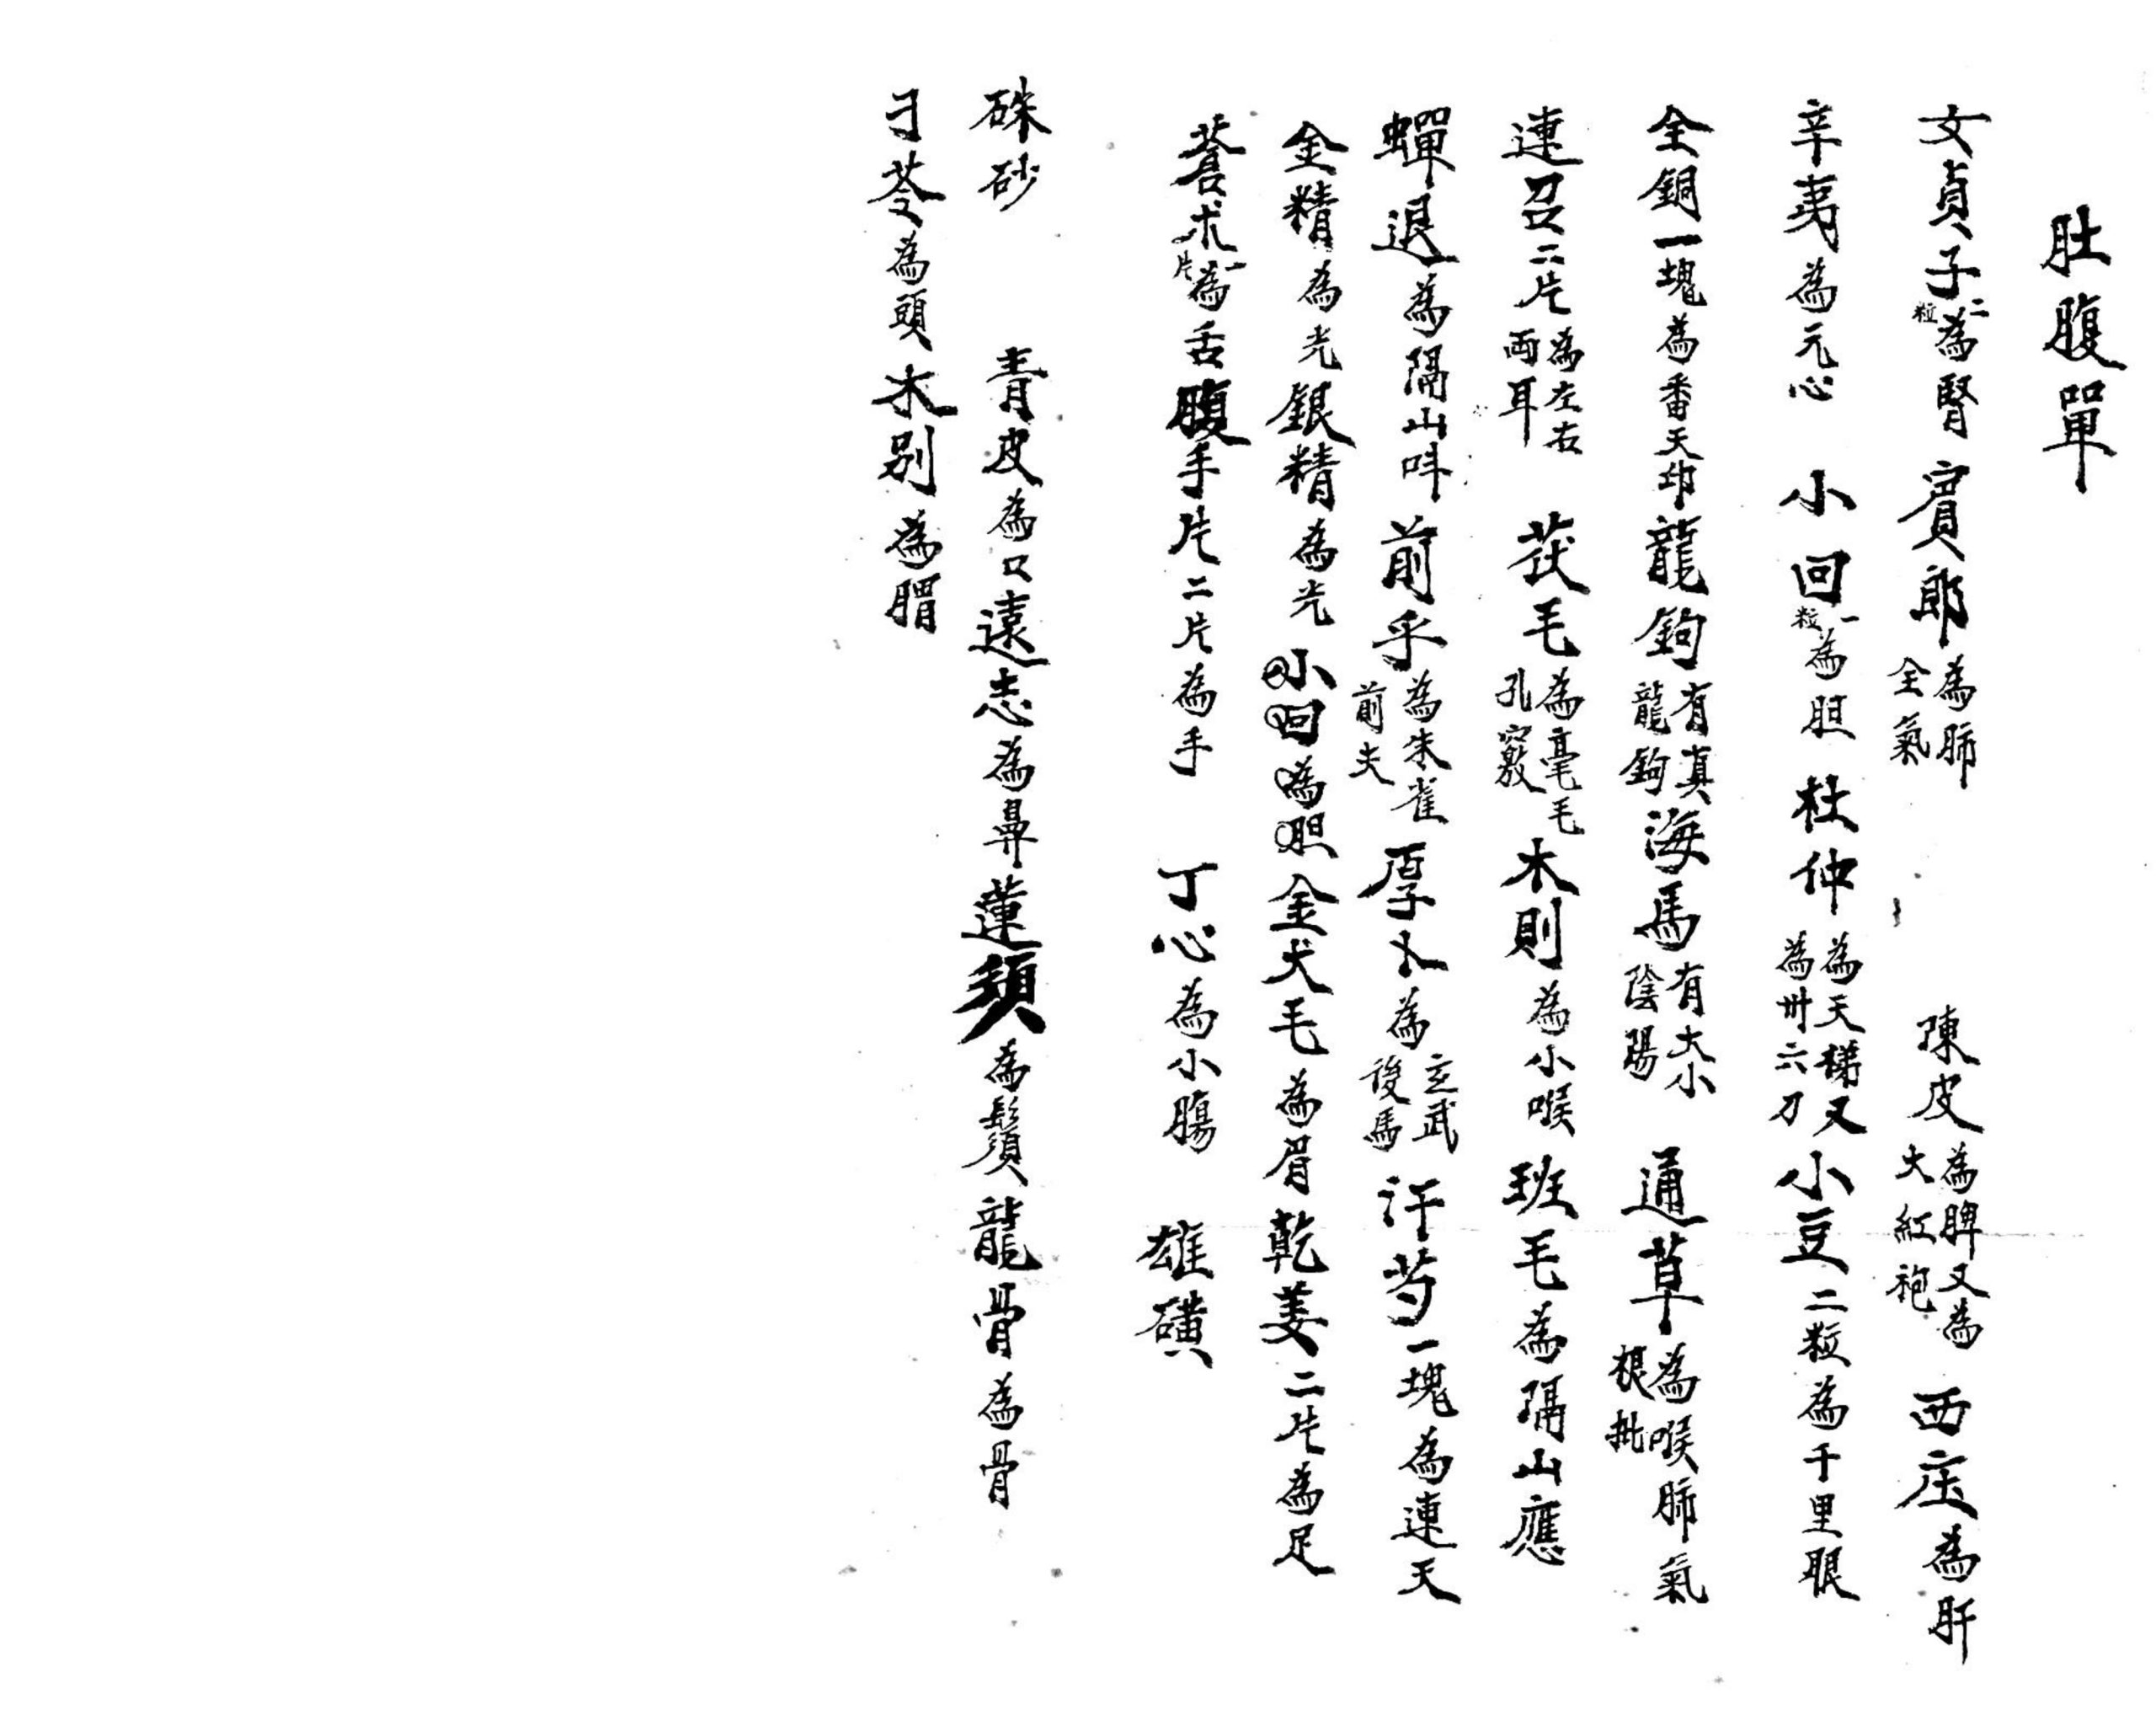 肚腹單
女貞子二粒為腎　賓郎為肺全氣　陳皮為脾又為大紅袍　西庄為肝
辛夷為元心　小回一粒為胆　杜仲為天梯又為卅六刀　小豆二粒為千里眼
全銅一塊為番天印　龍鉤有真龍鉤　海馬有大小陰陽　通草為喉肺氣根批
連召二片為左右兩耳　茯毛為毫毛孔竅　木則為小喉　班毛為隔山應
蟬退為隔山呌　前乎為朱雀前夫　厚卜為玄武後馬　汗芍一塊為連天
金精為光　銀精為光　小回為胆　金犬毛為眉　乾姜二片為足
莪朮一片為舌　腹手片二片為手　丁心為小腸　雄磺
硃砂　青皮為口　遠志為鼻　蓮須為鬚　龍骨為骨
刁苓為頭　木別為䐃